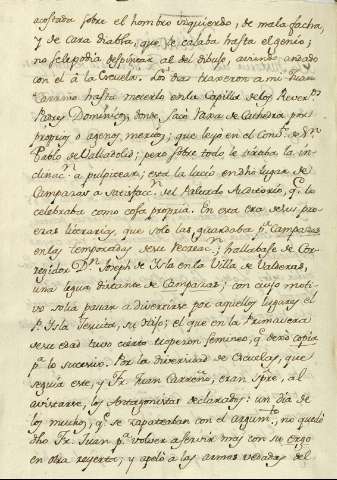 acostada sobre el hombro izquierdo, de mala facha,
y de cara diabla, que se calaba hasta el genio;
no se le podia despintar al del dibuxo, aviendo andado
con el á la Escuela. Los dias traxeron a mi Juan
hasta meterlo en la Capilla de los Rever.s
Padres Dominicos, donde sacó Plaza de Cathedra por
proprios o agenos meritos; que leyó en el Conv.to de S.n
Pablo de Valladolid; pero sobre todo le tiraba la in-
clinac.n a pulpitear; esta la lució en dho lugar de
Campazas a satisfacc.n del Auditorio, q.e lo
celebraba como cosa propria. En esta era de sus pro-
ezas literarias, que solo las guardaba p.a Campazas
en las temporadas de su recreac.n; hallabase de Cor-
regidor D.n Joseph de Isla en la Villa de Valderas,
una legua distante de Campazas; con cuyo moti-
vo solia pasar a divertirse por aquellos lugares el
P. Isla Jesuita, su Hijo; el que en la Primavera
de su edad tuvo cierto tropezon femineo, q.e dexó copia
p.a lo sucesivo. Por la diversidad de Escuelas, que
seguia este, y Fr. Juan Carreño, eran spre, al
avistarse, los Antagonistas declarados: un dia de
los muchos, q.e se rapartaban con el argum.to, no quedó
dho Fr. Juan p.a volver a servir mas con su ergo
en otra reyerta; y apeló a las armas vedadas del